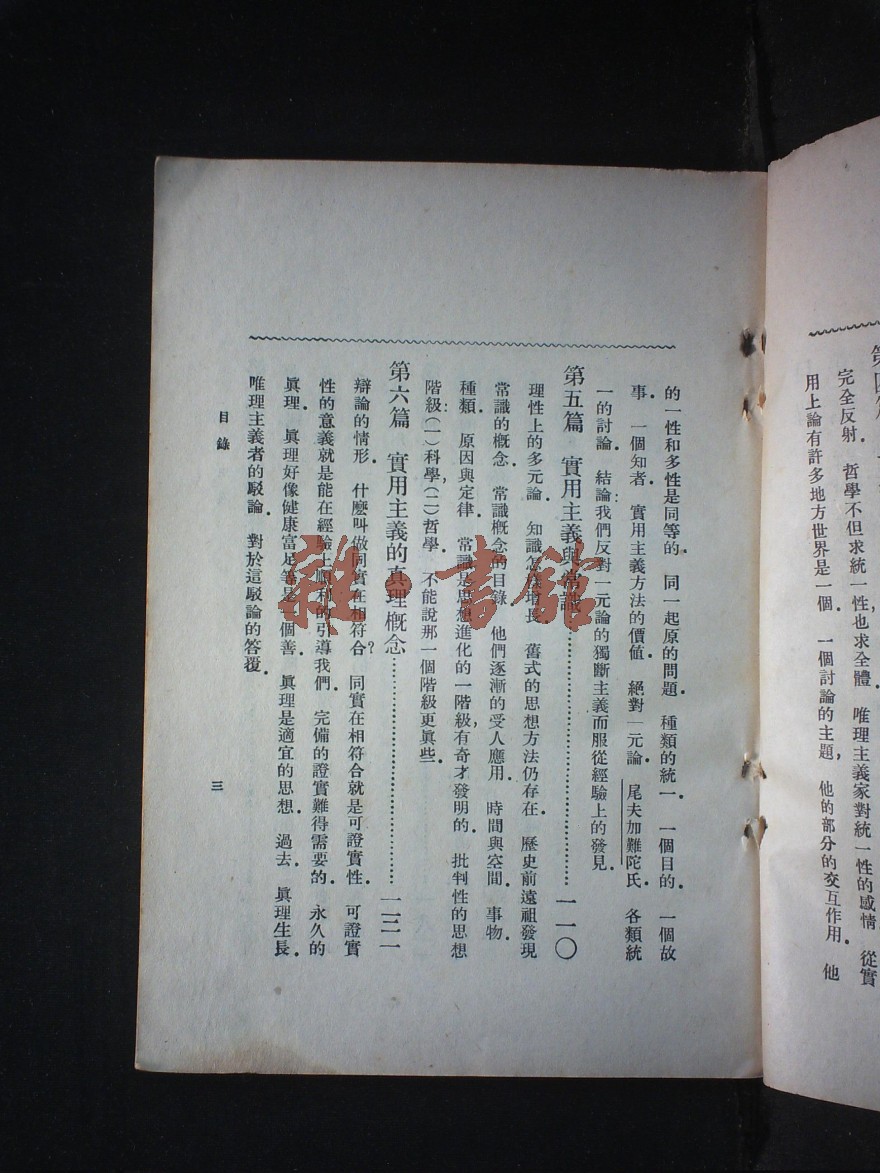 完全反射．哲學不但求統一性，也求全體．唯理主義家對統一性的感情．從實
用上論有許多地方世界是一個．一個討論的主題．他的部分的交互作用．他
的一性和多性是同等的．同一起原的問題．種類的統一．一個目的．一個故
事．一個知者．實用主義方法的價值．絕對一元論．尾夫加難陀氏．各類統
一的討論．結論：我們反對一元論的獨斷主義而服從經驗上的發見．
第五篇　實用主義與常識……………………一一〇
理性上的多元論．知識怎樣增長．舊式的思想方法仍存在．歷史前遠祖發現
常識的概念．常識概念的目錄．他們逐漸的受人應用．時間與空間．事物．
種類．原因與定律．常識是思想進化的一階級，有奇才發明的．批判性的思想
階級：（一）科學，（二）哲學．不能說那一個階級更眞些．
第六篇　實用主義的真理概念……………………一三一
辯論的情形．什麽叫做同實在相符合？同實在相符合就是可證實性．可證實
性的意義就是能在經驗上順利的引導我們．完備的證實難得需要的．永久的
眞理．眞理好像健康富足等是一個善．眞理是適宜的思想．過去．眞理生長．
唯理主義者的駁論．對於這駁論的答覆．
目錄
三
雜·書館